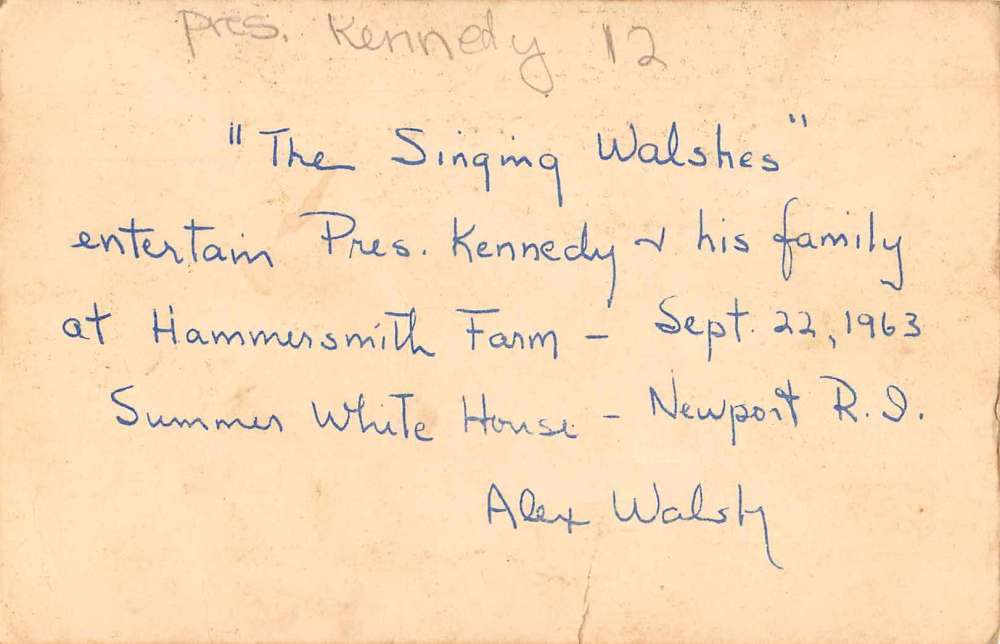 Pres. Kennedy 12
"The Singing Walshes"
entertain Pres. Kennedy & his family
at Hammersmith Farm - Sept. 22, 1963
Summer White House - Newport R.I.
Alex Walsh